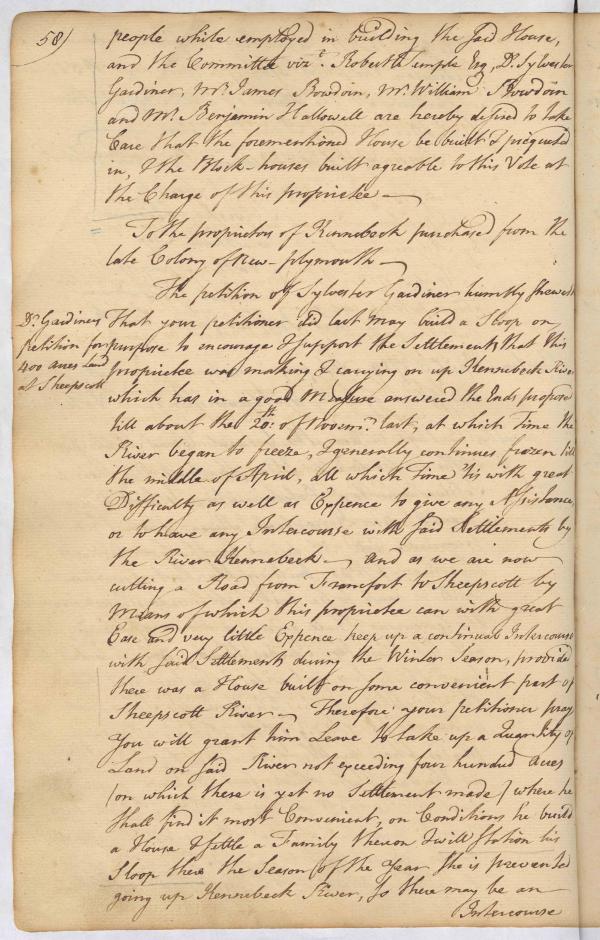 58)
people while employed in building the said House,
and the Committee vizt. Robert Temple Esq, Dr. Sylvester
Gardiner, Mr. James Bowdoin, Mr. William Bowdoin
and Mr. Benjamin Hallowell are hereby desired to take
Care that the forementioned House be built & picqueted
in, & the Block-houses built agreable to this Vote at
the Charge of this proprietee —
To the proprietors of Kennebeck purchased from the
late Colony of New-plymouth —
The petition of Sylvester Gardiner humbly sheweth
Dr. Gardiners
petition for
400 acres Land
at Sheepscott
That your petitioner did last May build a Sloop on
purpose to encourage & support the Settlements that this
proprietee was making & carrying on up Kennebeck River
which has in a good Measure answered the Ends proposed
till about the 20th: of Novemr. last, at which Time the
River began to freeze, & generally continues frozen till
the middle of April, all which Time 'tis with great
Difficulty as well as Expence to give any Assistance
or to have any Intercourse with said Settlements by
the River Kennebeck — and as we are now
cutting a Road from Francfort to Sheepscott by
Means of which this proprietee can with great
Ease and very little Expence keep up a continual Intercourse
with said Settlements during the Winter Season, provided
there was a House built on some convenient part of
Sheepscott River — Therefore your petitioner prays
You will grant him Leave to take up a Quantity of
Land on said River not exceeding four hundred acres
(on which there is yet no Settlement made) where he
shall find it most Convenient, on Conditions he build
a House & settle a Family thereon & will station his
Sloop there the Season of the Year she is prevented
going up Kennebeck River, so there may be an
Intercourse